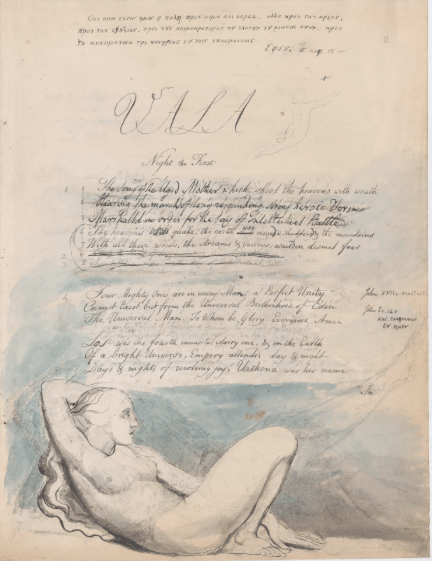 Οτι ουκ εστιν ημιν η παλη προς αιμα και σαρκα, αλλα προς τας αρχας,
προς τας εξουσιας, προς τους κοσμοκρατορας του σκοτους του αιωνος τουτου, προς
τα πνευματικα της πονηριας εν τοις επουρανιοις.
Εφεσ:
2
VALA
Night the First
The Song of the Aged Mother which shook the heavens with wrath
Hearing the march of long resounding strong heroic Verse
Marshalld in order for the day of Intellectual Battle
The heavens quake: the earth moved & shudderd & the mountains
With all their woods, the streams & valleys: waild in dismal fear
Four Mighty Ones are in every Man; a Perfect Unity
Cannot Exist but from the Universal Brotherhood of Eden
The Universal Man. To Whom be Glory Evermore Amen
John XVII c
John I c. 14 v
και εσκηνωσεν
εν ημιν
Los was the fourth immortal starry one, & in the Earth
Of a bright Universe, Empery attended day & night
Days & nights of revolving joy, Urthona was his name
In